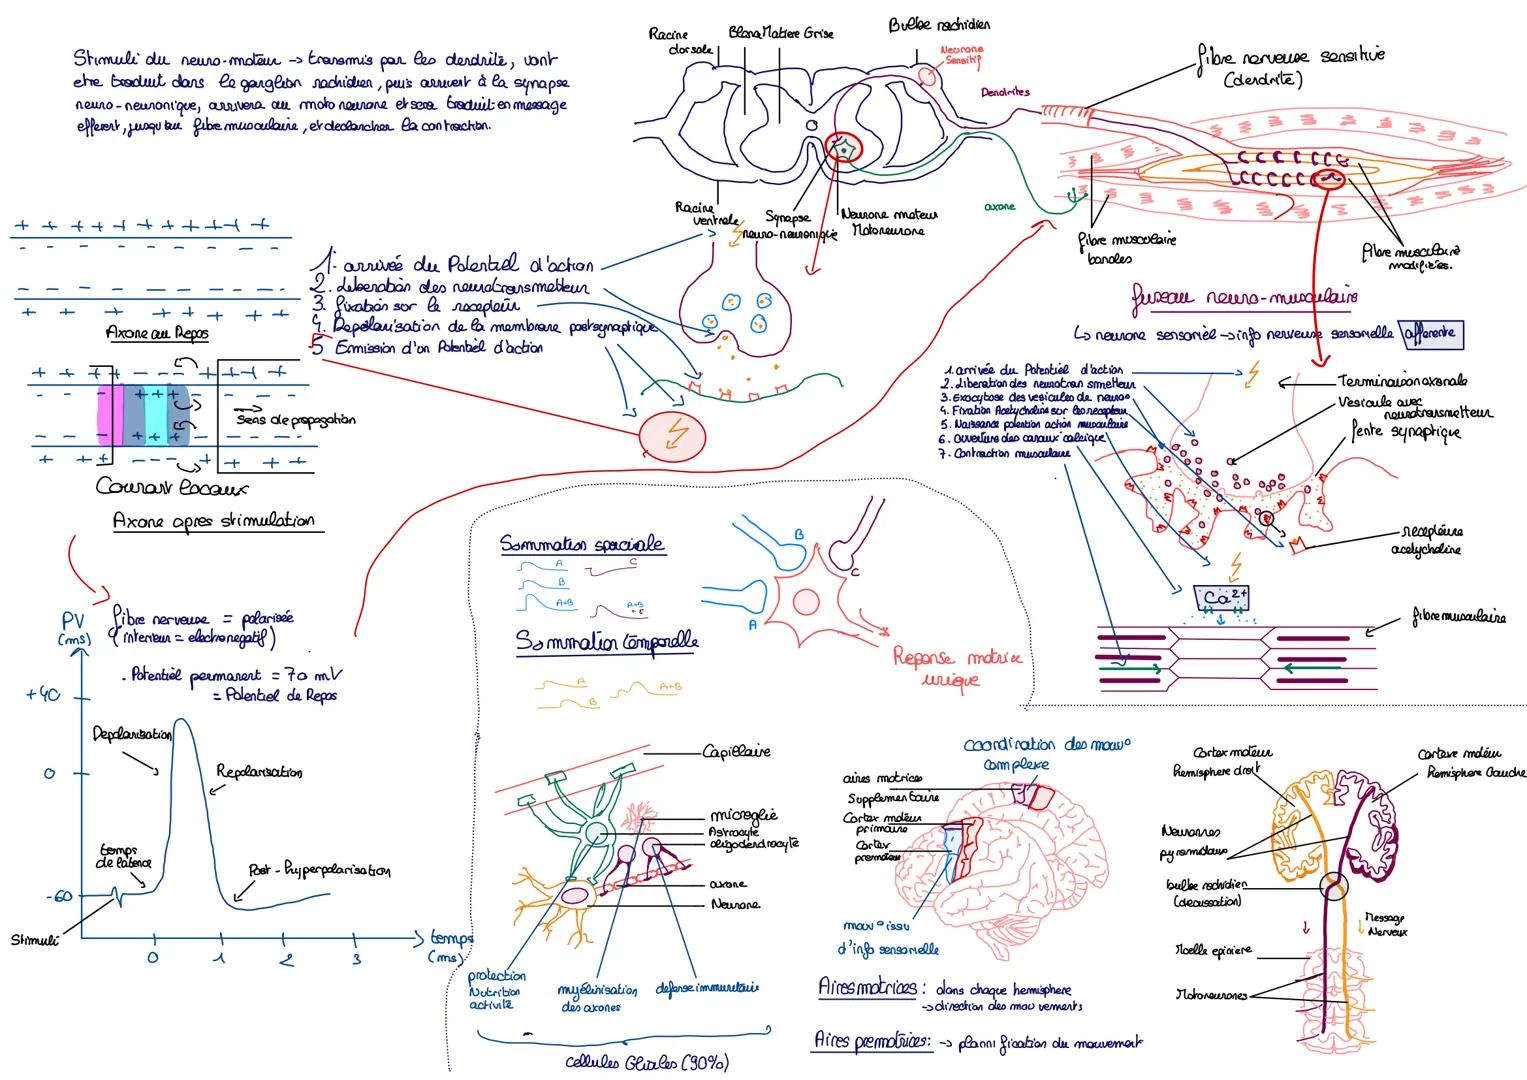 Stimuli du neuro-moteur -> transmis par les dendrite, vont
etre traduit dans le ganglion rachidien, puis arrivent à la synapse
neuro-neuronique, arrivera au moto neurone et sera traduit en message
efferent, jusqu'au fibre musculaire, et declancher la contraction.
Racine
dorsale
Blanc
Matiere Grise
Bulbe rachidien
Neurone
Sensitif
Dendrites
fibre nerveuse sensitive
(dendrite)
Racine
ventrale
Synapse
neuro-neuronique
Neurone moteur
Motoneurone
axone
fibre musculaire
banales
fibre musculaire
modifiées.
fuseau neuro-musculaire
↳ neurone sensoriel -> info nerveuse sensorielle afferente
Axone au Repos
1. arrivée du Potentiel d'action
2. Liberation des neurotransmetteur
3. fixation sur le recepteur
4. Depolarisation de la membrane postsynaptique
5 Emission d'un Potentiel d'action
Sens de propagation
Courant locaux
Axone apres stimulation
1. arrivée du Potentiel d'action
2. Liberation des neurotransmetteur
3. Exocytose des vesicules de neuro°
4. Fixation Acetycholine sur les recepteur
5. Naissance potention action musculaire
6. Ouverture des canaux calcique
7. Contraction musculaire
Terminaison axonale
Vesicule avec
neurotransmetteur
fente synaptique
recepteure
acetycholine
Ca²⁺
fibre musculaire
fibre nerveuse = polarisée
(interieur = electronegatif)
. Potentiel permanent = 70 mV
= Potentiel de Repos
PV
(ms)
+40
0
-60
Depolarisation
Repolarisation
temps
de latence
Post-hyperpolarisation
Stimuli
0 1 2 3
temps
(ms)
Sommation spaciale
A
C
B
A+B
A+B
+C
Sommation temporelle
A
B
A+B
B
C
A
Reponse motrice
unique
Capillaire
microglie
Astrocyte
oligodendrocyte
axone
Neurone
protection
Nutrition
activité
myélinisation
des axones
defense immunitaire
cellules Gliales (90%)
coordination des mouv°
complexe
aires motrices
Supplementaire
Cortex moteur
primaire
Cortex
premoteur
mouv° issu
d'info sensorielle
Aires motrices : dans chaque hemisphere
-> direction des mouvements
Aires premotrices: -> plannification du mouvement
Cortex moteur
hemisphere droit
Cortexe moteur
hemisphere Gauche
Neuronnes
pyramidaux
bulbe rachidien
(decussation)
Message
Nerveux
Moelle epiniere
Motoneurones